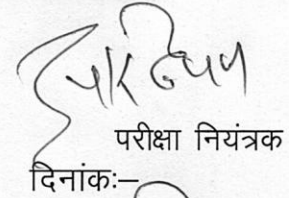 परीक्षा नियंत्रक
दिनांकः–